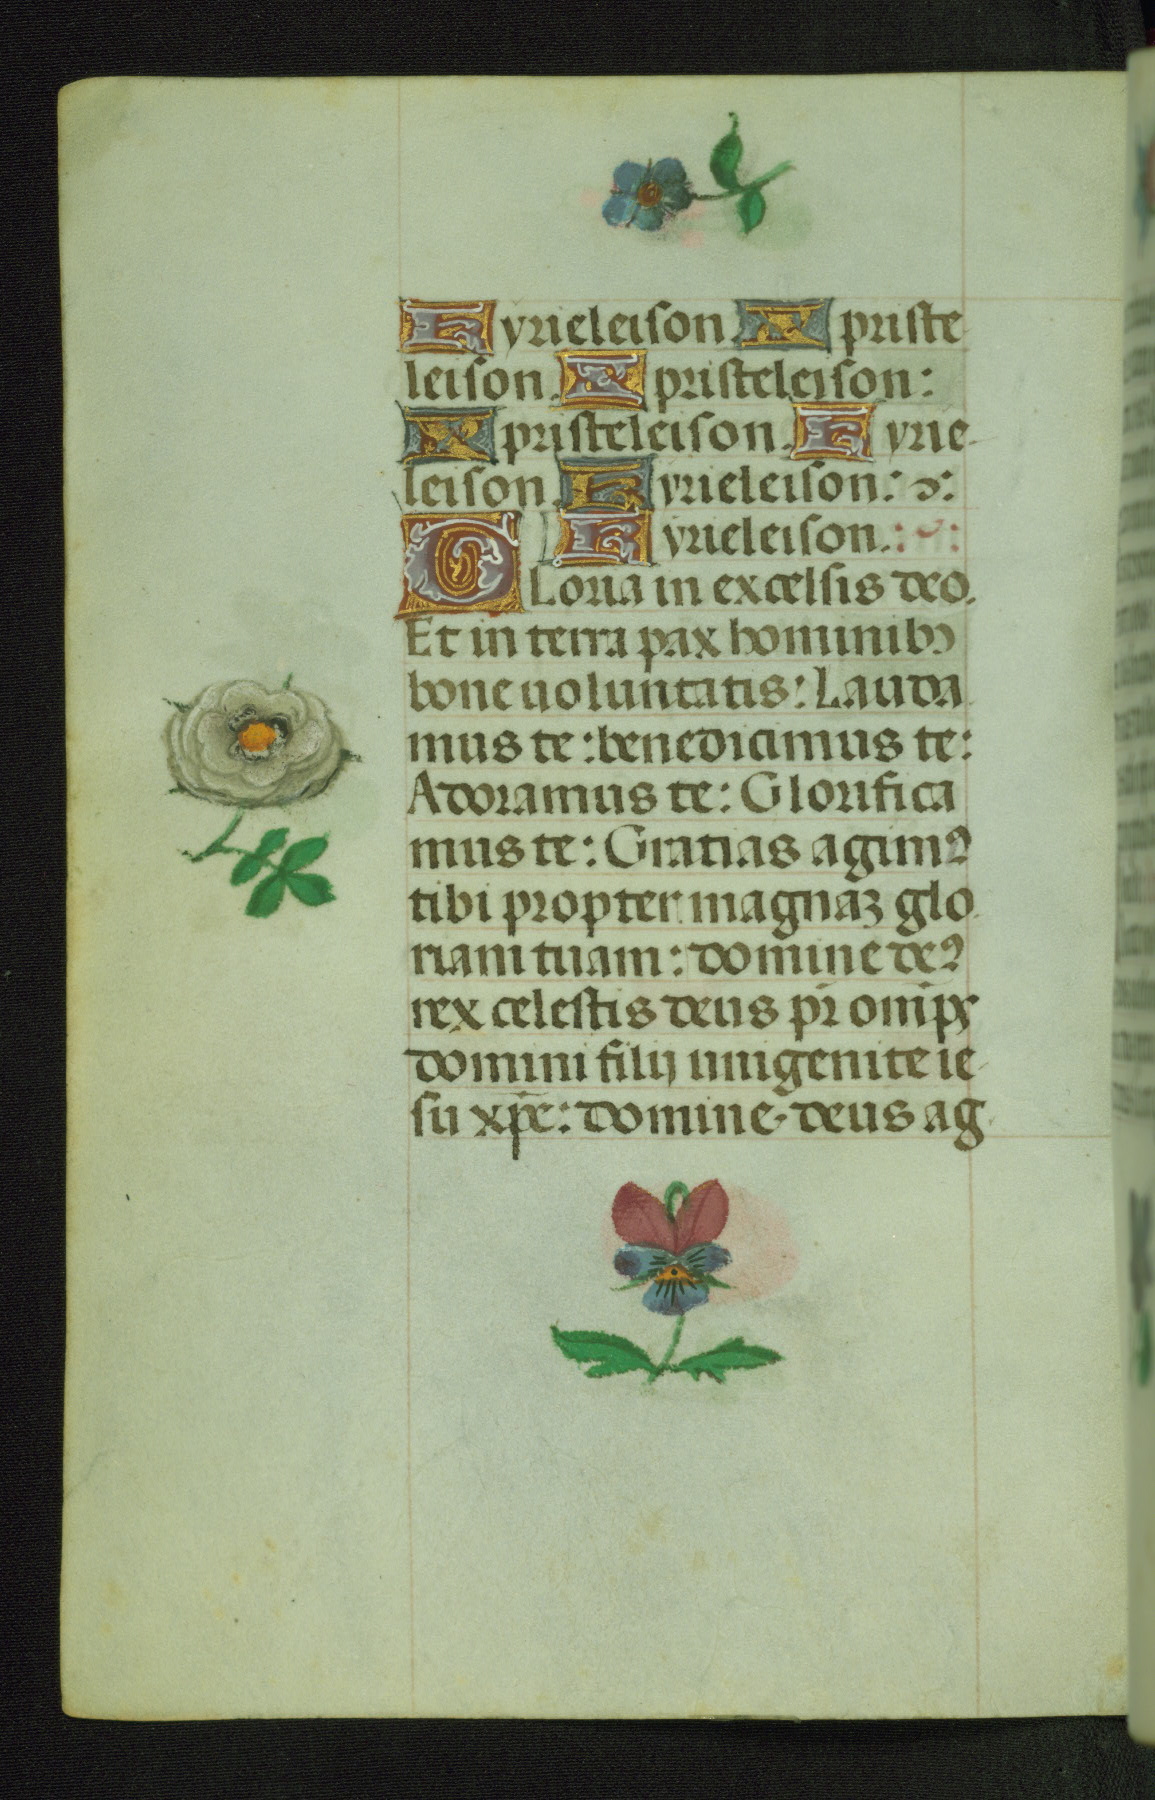 Kyrieleison. Xpriste
leison. Xpristeleison:
Xpristeleison. Kyrie
leison. Kyrieleison:
Kyrieleison.:
Gloria in excelsis deo.
Et in terra pax hominibꝫ
bone uoluntatis: Lauda
mus te: benedicimus te:
Adoramus te: Glorifica
mus te: Gratias agimꝰ
tibi propter magnāꝫ glo
riam tuam: domine deꝰ
rex celestis deus pr̄ omp̄s
domini filij unigenite ie
su xp̄e: domine deus ag